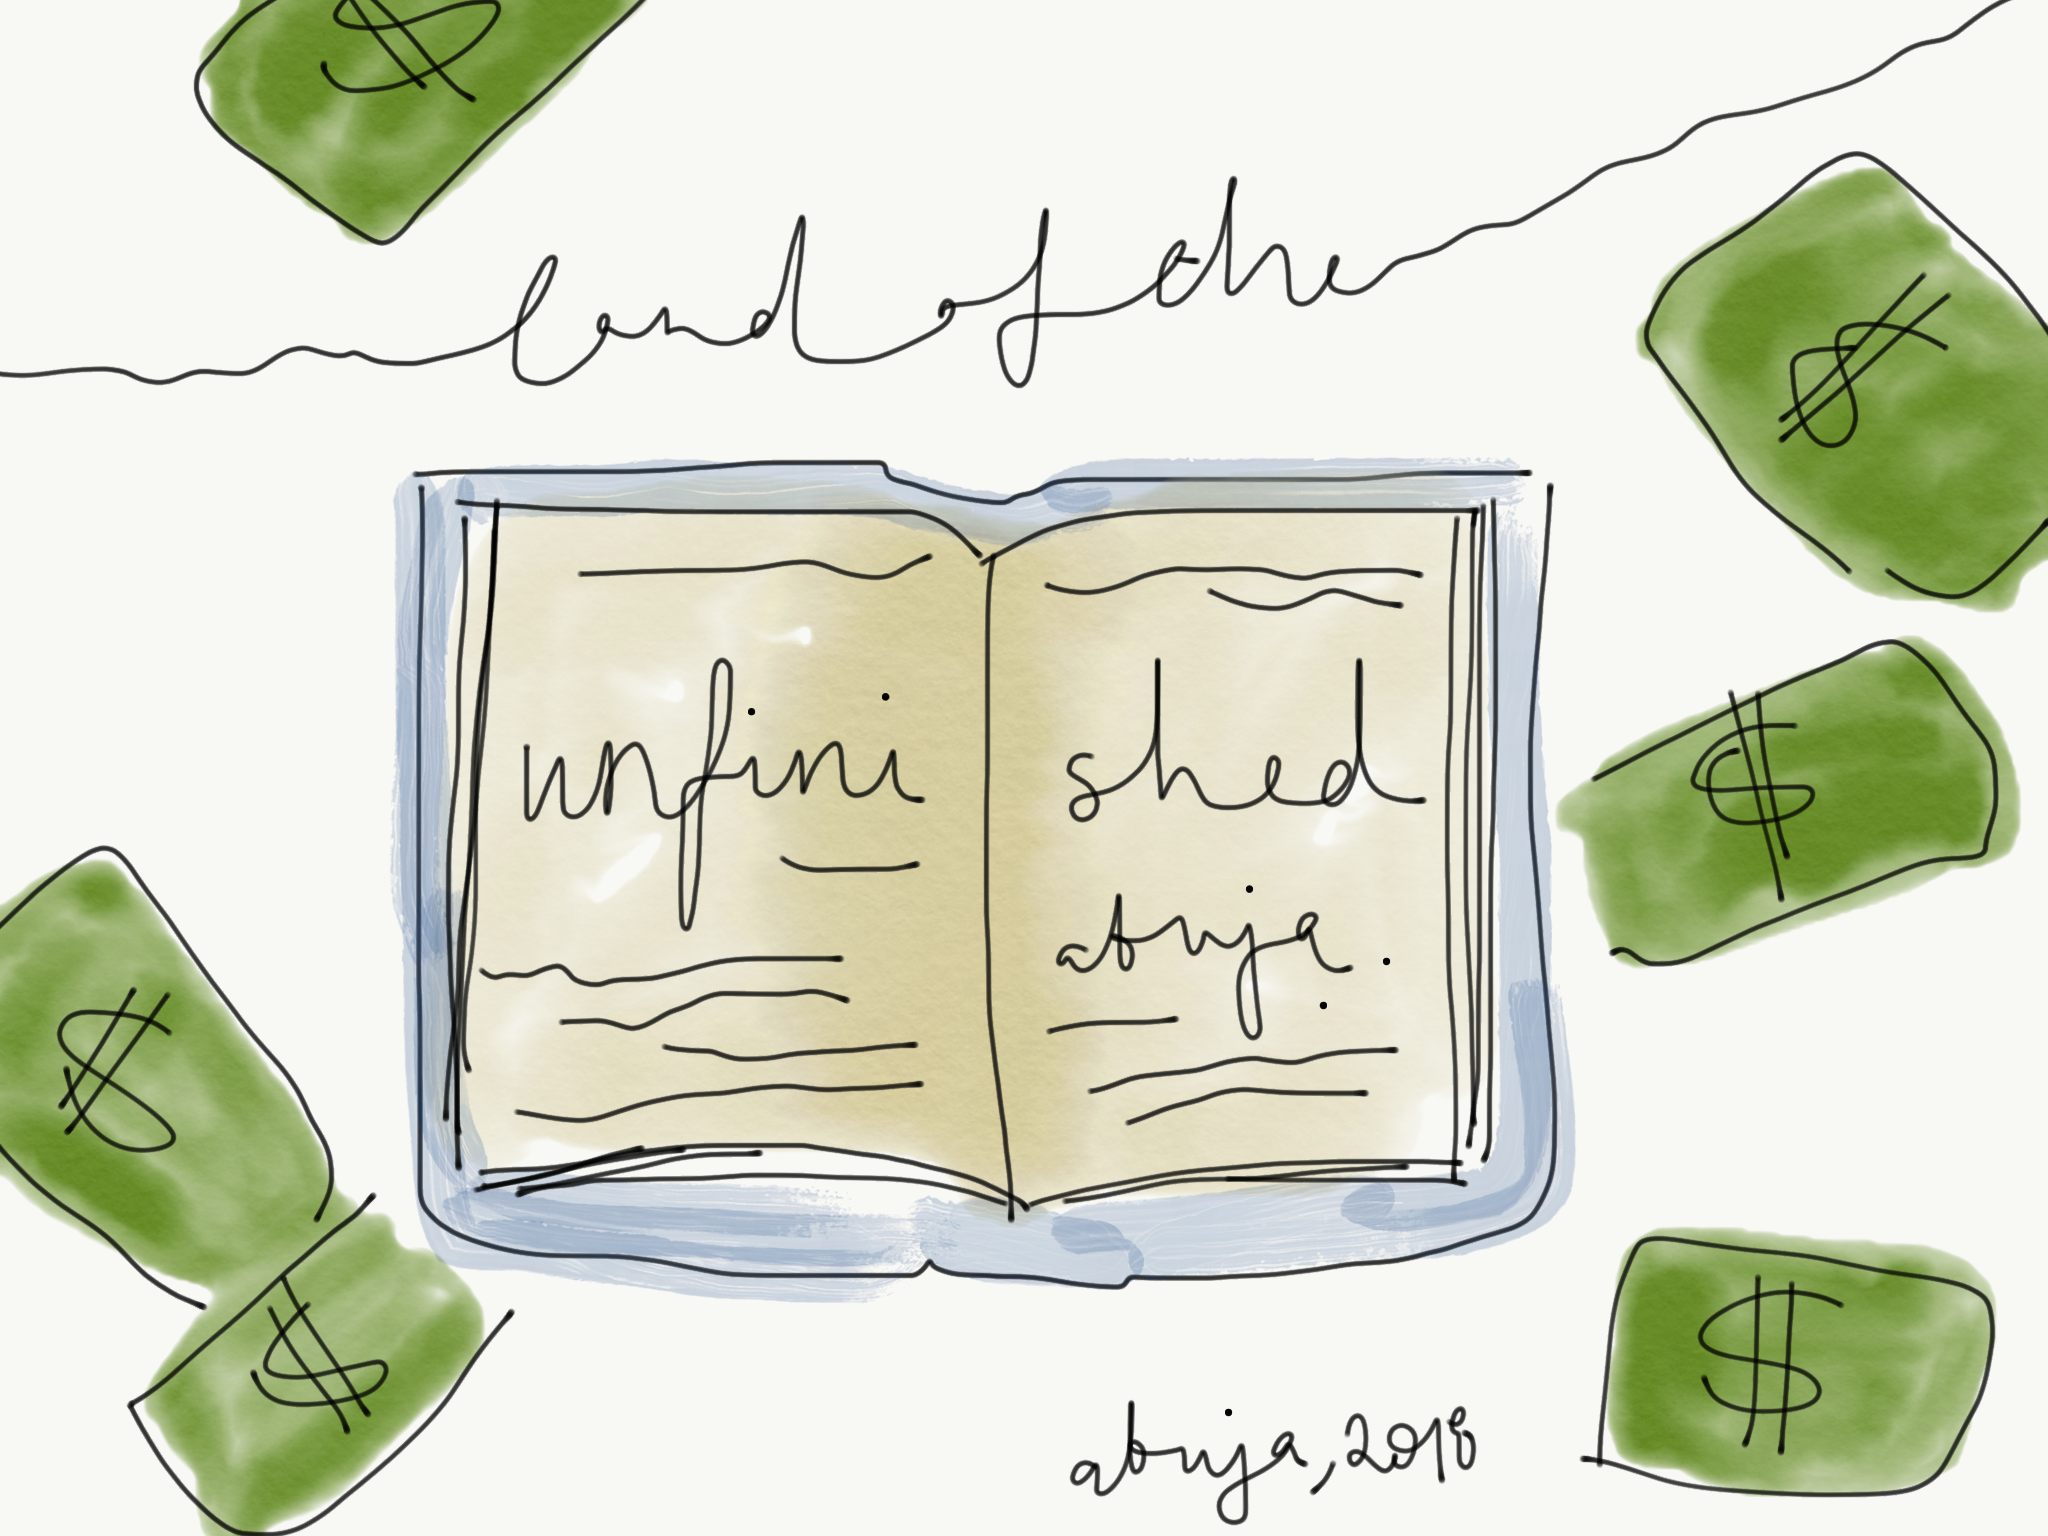 $
land of the
$
unfini shed
$
abuja.
$
$
$
abuja, 2018